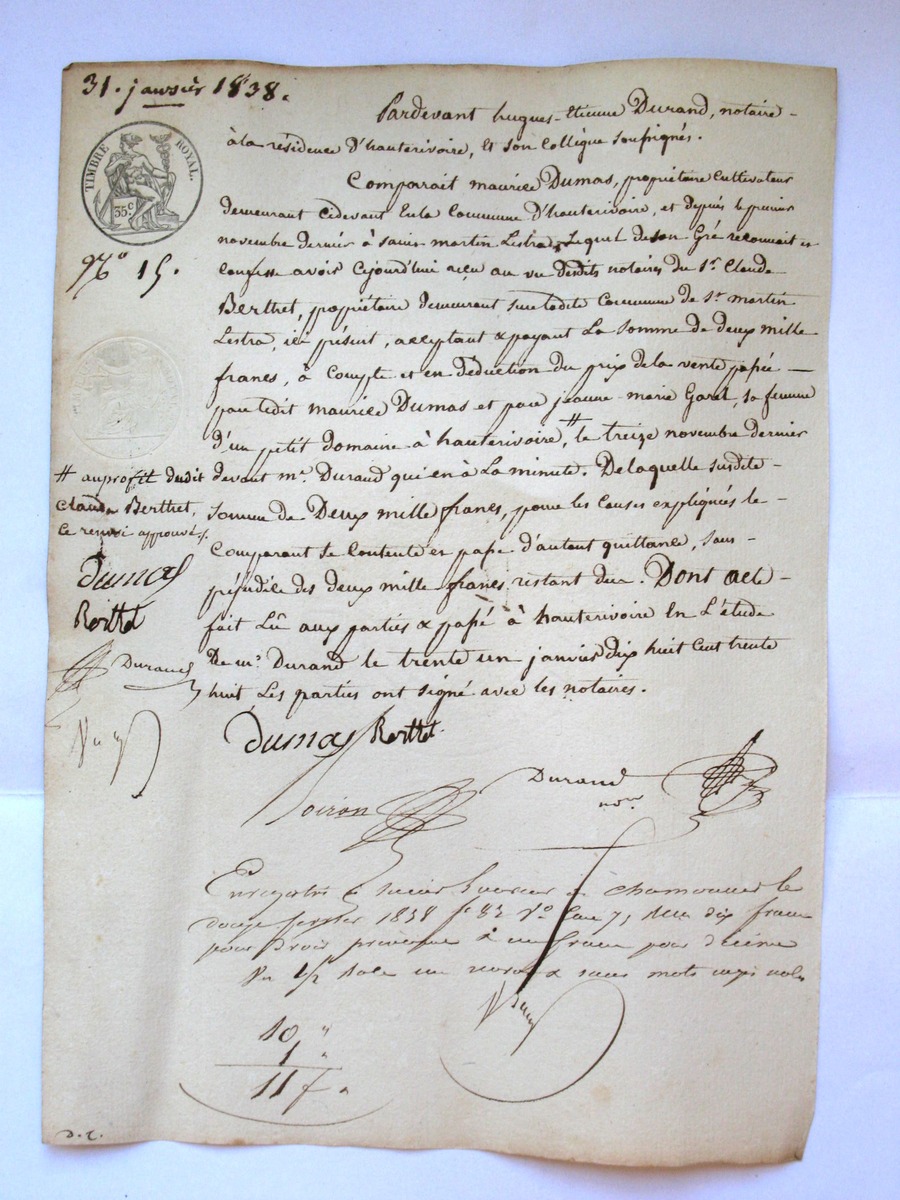 31. janvier 1838.
Pardevant hugues-Etienne Durand, notaire -
à la résidence D'hauterivoire, Et son Collègue soussignés.
TIMBRE ROYAL.
35 c.
Comparait maurice Dumas, propriétaire Cultivateur
demeurant cidevant En la Commune D'hauterivoire, et depuis le premier
novembre dernier à saint martin Lestra, Lequel de son Gré reconnait et
No 15.
confesse avoir Cejourd'hui reçu au vu desdits notaires du sr. Claude
Berthet, propriétaire demeurant sur ladite Commune de st. martin
Lestra, ici présent, acceptant & payant La somme de deux mille
francs, à Compte et en déduction du prix de la vente passée —
par ledit maurice Dumas et par jeanne-marie Garel, sa femme
d'un petit domaine à hauterivoire, # le treize novembre dernier
devant me. Durand qui en à La minute. De laquelle susdite -
somme de Deux mille francs, pour les Causes expliquées le -
Comparant se Contente et passe d'autant quittance, sans -
préjudice des deux mille francs restant dus. Dont acte -
fait Lû aux parties & passé à hauterivoire En L'étude
De me. Durand le trente un janvier dix huit Cent trente
huit Les parties ont signé avec les notaires.
# au profit dudit
Claude Berthet,
ce renvoi approuvé.
Dumas
Berthet
Durand
Dumas Berthet
Durand
nore.
Coiron
Enregistré à
douze fevrier 1838 fo 82 vo Case 7, reçu dix francs
pour droit principal & un franc pour décime
10 "
1 "
11 f "
D. C.